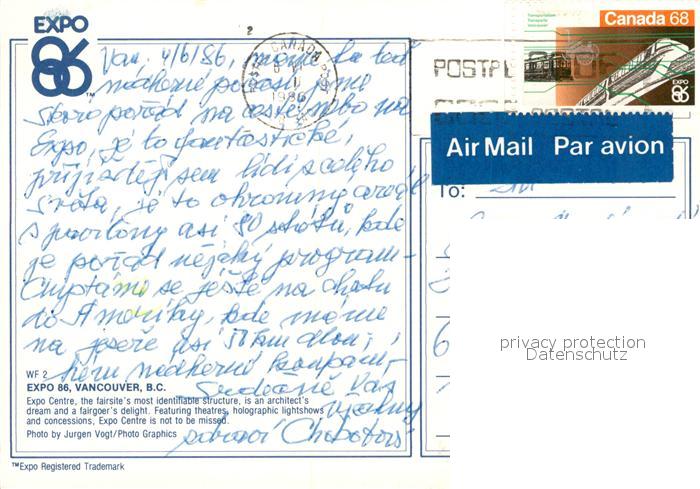 EXPO
86
™
Van, 4/6/86,
nádherné počasí, jsme
skoro pořád na cestě nebo na
Expo, je to fantastické,
přijíždějí sem lidi z celého
světa, je to ohromný areál
s pavilony asi 80 států, kde
je pořád nějaký program.
Chystáme se ještě na chatu
do Ameriky, kde máme
na jezeře asi
nádherné koupání.
Srdečně Vás
všechny
zdraví
WF 2
EXPO 86, VANCOUVER, B.C.
Expo Centre, the fairsite's most identifiable structure, is an architect's
dream and a fairgoer's delight. Featuring theatres, holographic lightshows
and concessions, Expo Centre is not to be missed.
Photo by Jurgen Vogt/Photo Graphics
™Expo Registered Trademark
CANADA
1986
POSTPL
Transportation
Transports
Vancouver
Canada 68
EXPO
86
Air Mail Par avion
To:
privacy protection
Datenschutz